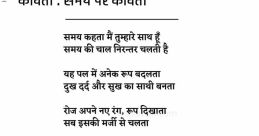 कविता : समय पर कविता
समय कहता मैं तुम्हारे साथ हूँ
समय की चाल निरन्तर चलती है
यह पल में अनेक रूप बदलता
दुख दर्द और सुख का साथी बनता
रोज अपने नए रंग, रूप दिखाता
सब इसकी मर्जी से चलता